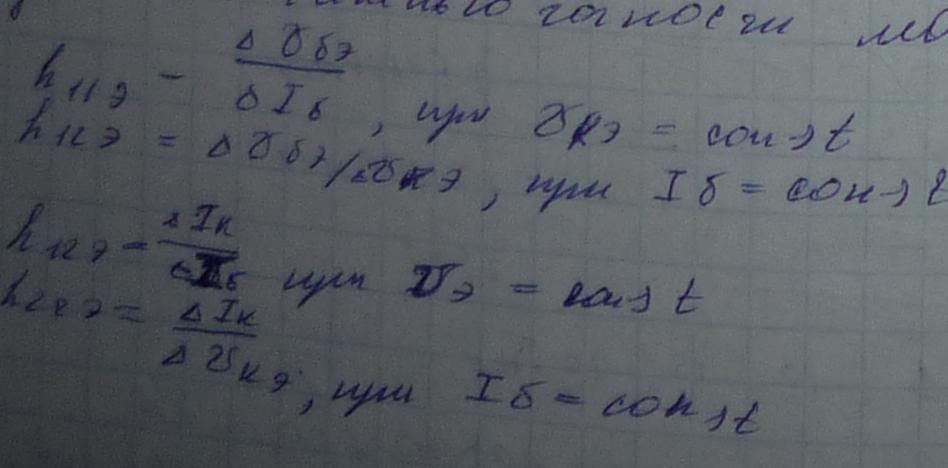 точности
h11э = ΔUбэ / ΔIб, при Uкэ = const
h12э = ΔUбэ/ΔUкэ, при Iб = const
h12э = ΔIк / ΔIб при Uэ = const
h22э = ΔIк / ΔUкэ, при Iб = const